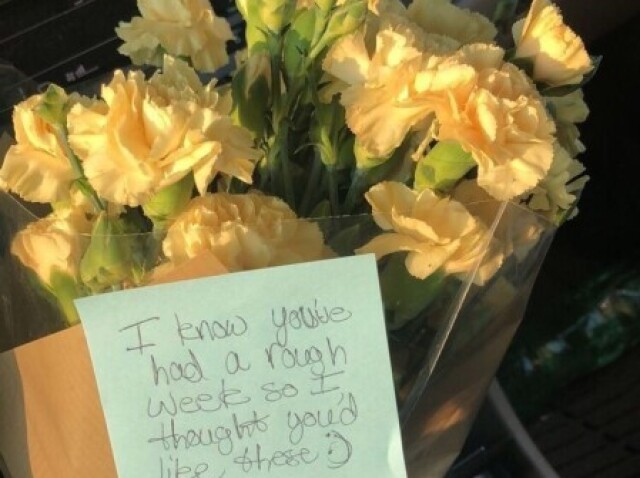 I know you've
had a rough
week so I
thought you'd
like these :)